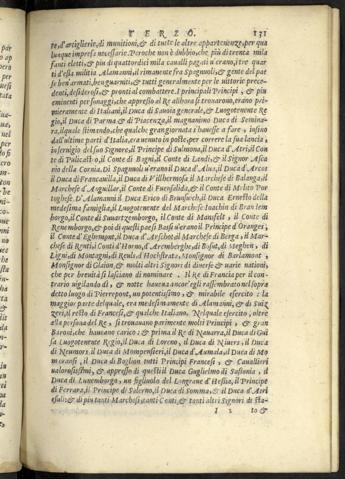 TERZO. 131
te, d'arteglierie, di munitioni, & di tutte le altre appartenenze, per qua
lunque impresa necessarie. Peroche non è dubbio, che più di trenta mila
fanti eletti, & più di quattordici mila cavalli pagati v'erano, i tre quar
ti d'essa militia Alamanni, il rimanente fra Spagnuoli, & gente del pae
se ben armati, ben guarniti, & tutti generalmente per le vittorie prece
denti, desiderosi, & pronti al combattere. I principali Principi, & più
eminenti personaggi, che appresso al Re allhora si trovarono, erano pri-
mieramente di Italiani, il Duca di Savoia generale, & Luogotenente Re
gio, il Duca di Parma & di Piacenza, il magnanimo Duca di Semina-
ra, il quale stimando, che qualche gran giornata s'havesse a fare, infino
dall'ultime parti d'Italia, era venuto in poste, per correre la sua lancia,
in servigio del suo Signore, il Principe di Sulmona, il Duca d'Atri, il Con
te di Policastro, il Conte di Bagni, il Conte di Landi, & il Signor Asca
nio della Cornia. Di Spagnuoli v'erano il Duca d'Alva, il Duca d'Arcos
il Duca di Francavilla, il Duca di Villhermosa, il Marchese di Balanga, il
Marchese d'Aogullar, il Conte di Fuensalida, & il Conte di Melito Por
toghese. D'Alamanni il Duca Erico di Brunsvich, il Duca Ernesto della
medesima famiglia, il Luogotenente del Marchese Ioachin di Branden
borgo, il Conte di Swartzemborgo, il Conte di Mansfelt, il Conte di
Renemborgo, & poi di questi paesi Bassi v'erano il Principe d'Oranges,
il Conte d'Eghemont, il Duca d'Arschot, il Marchese di Berga, il Mar-
chese di Renti, i Conti d'Horno, d'Aremberghe, di Bossut, di Meghen, di
Ligni, di Montagni, di Reuls, d'Hochstrata, Monsignor di Barlamont,
Monsignor di Glaion, & molti altri Signori di diverse & varie nationi,
che per brevità si lasciano di nominare. Il Re di Francia per il con-
trario vigilando dì, & notte haveva anch'egli rassembrato nel sopra
detto luogo di Pierrepont, un potentissimo, & mirabile esercito: la
maggior parte del quale, era medesimamente di Alamanni, & di Suiz
zeri, il resto di Francesi, & qualche Italiano. Nel quale esercito, oltre
alla persona del Re, si trovavano parimente molti Principi, & gran
Baroni, che havevano carico: & prima il Re di Navarra, il Duca di Gui
sa Luogotenente Regio, il Duca di Loreno, il Duca di Nivers, il Duca
di Neumors, il Duca di Mompensieri, il Duca d'Aumala, il Duca di Mo
moransi, il Duca di Boglion, tutti Principi Francesi, & Cavallieri
valorosissimi, & appresso di questi il Duca Guglielmo di Sassonia, il
Duca di Lunenborgo, un figliuolo del Langravio d'Hessia, il Principe
di Ferrara, il Principe di Salerno, il Duca di Somma, & il Duca d'Atri
essuli: & di più tanti Marchesi, tanti Conti, & tanti altri Signori di sta-
I 2 to &